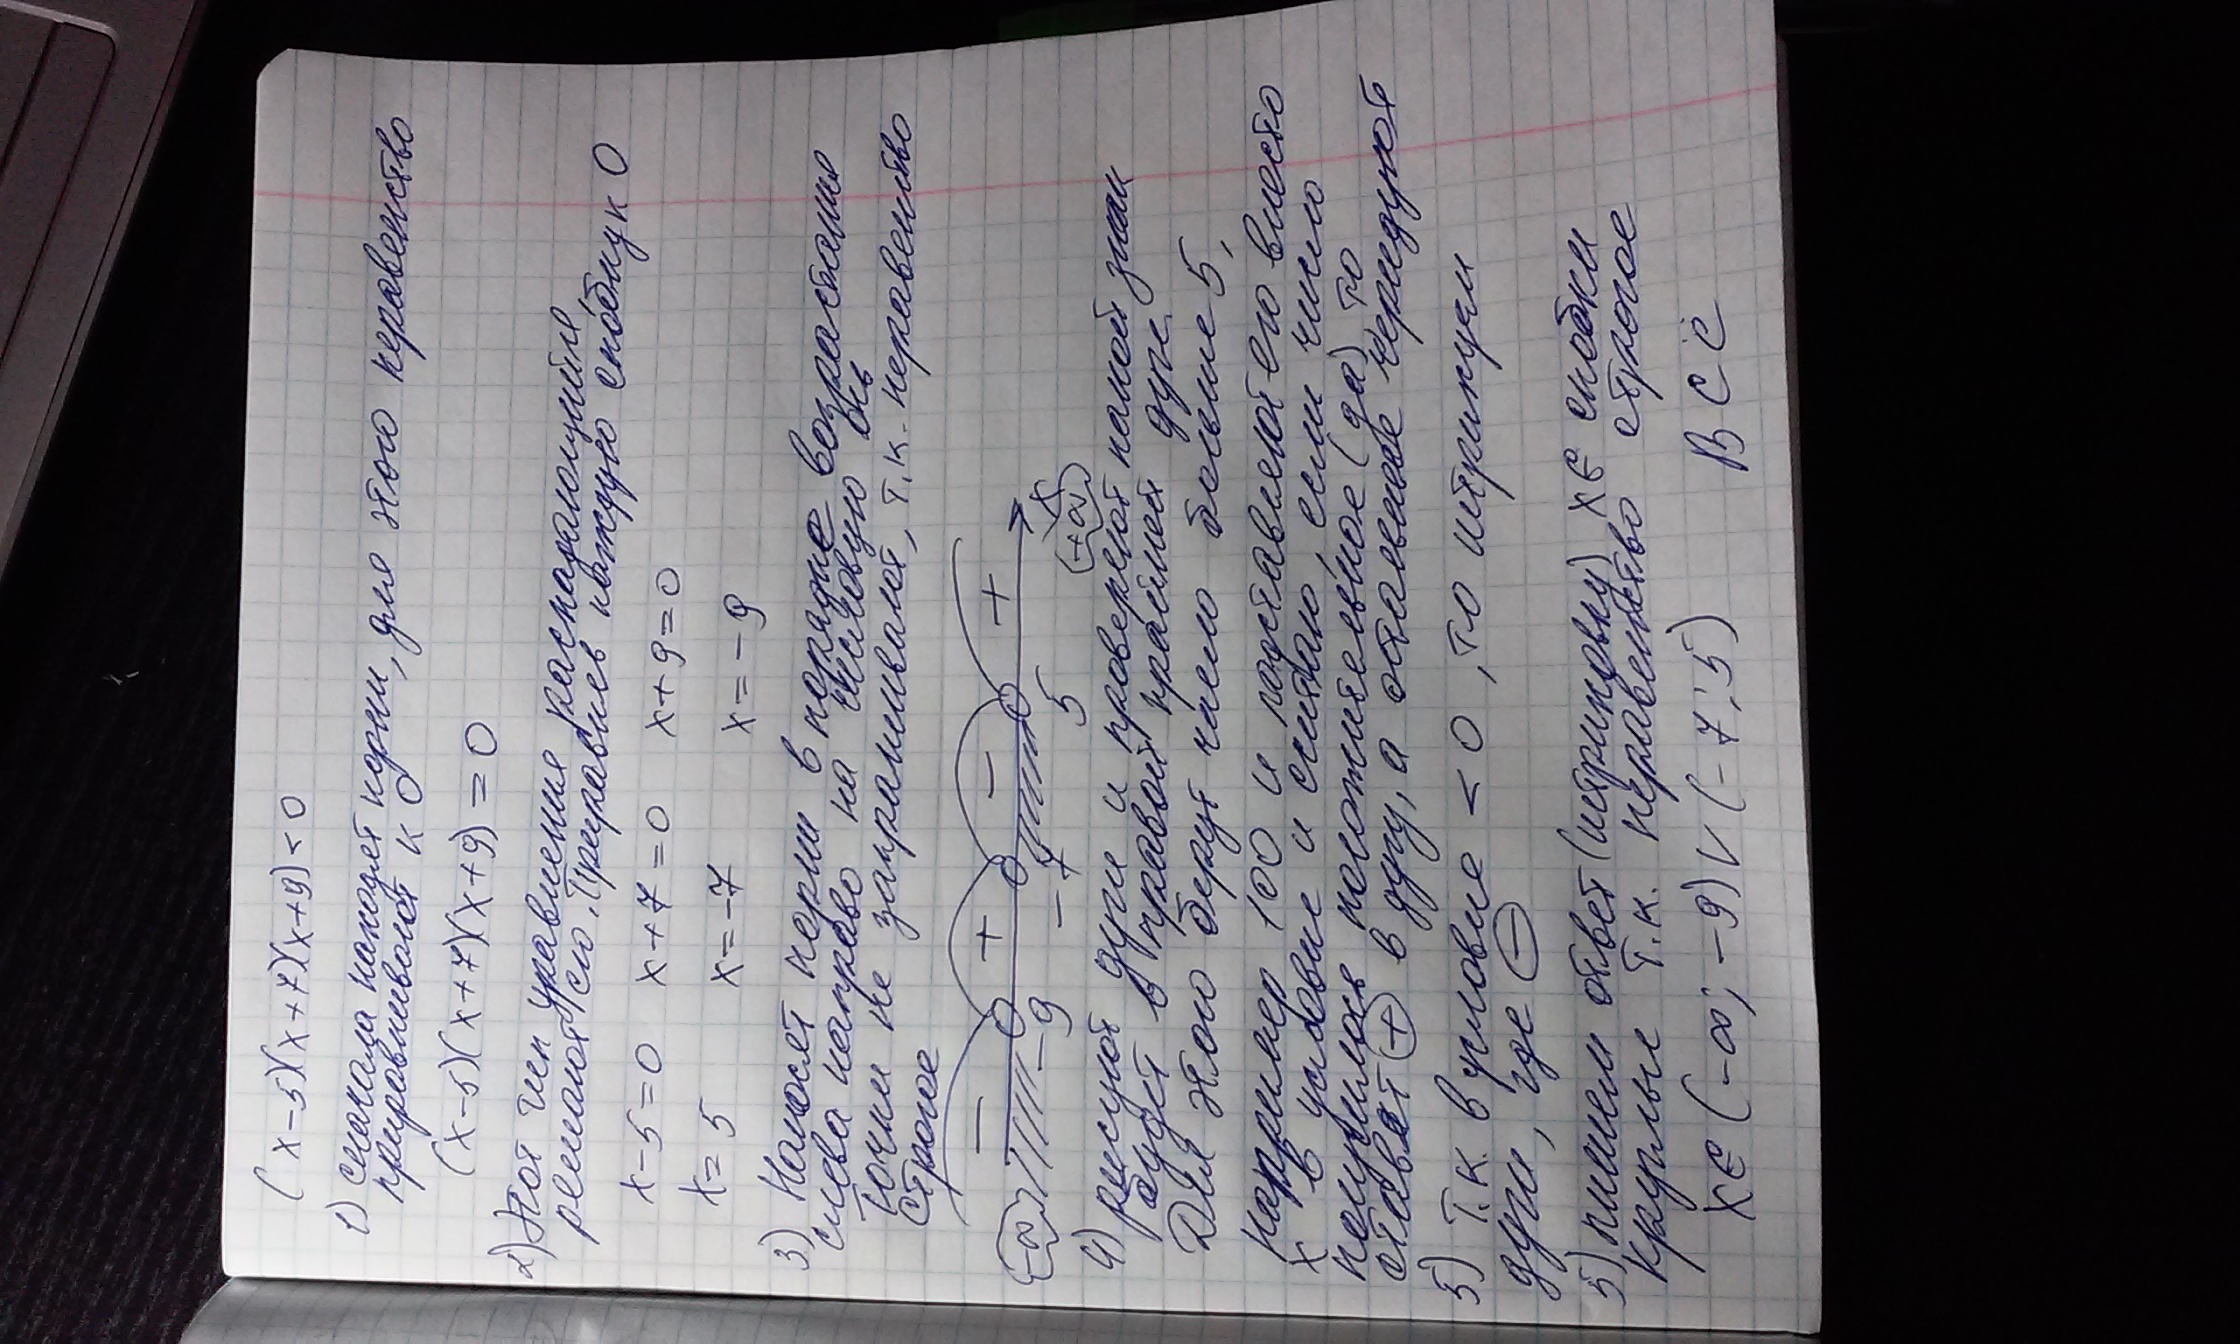 (x-5)(x+7)(x+9)<0
1) сначала находят корни, для этого неравенство
приравнивают к 0
(x-5)(x+7)(x+9)=0
2) Этот тип уравнения раскладывающийся
решают, приравнев каждую скобку к 0
x-5=0 x+7=0 x+9=0
x=5 x=-7 x=-9
3) Наносят корни в порядке возрастания
слева направо на числовую ось
Точки не закрашивают, т.к. неравенство
строгое
- + - +
(-∞) -9 -7 5 (+∞) x
4) рисуют дуги и проверяют какой знак
будет в правой крайней дуге.
Для этого берут число больше 5,
например 100 и поставляют его вместо
x в условие и считаю, если число
получилось положительное (да) то
ставят + в дугу, а остальные чередуют
5) Т.к. в условие < 0, то штрихуем
дуги, где -
5) пишем ответ (штриховку) x∈ скобки
круглые т.к. неравенство строгое
x∈(-∞; -9)∨(-7; 5) ВСЁ